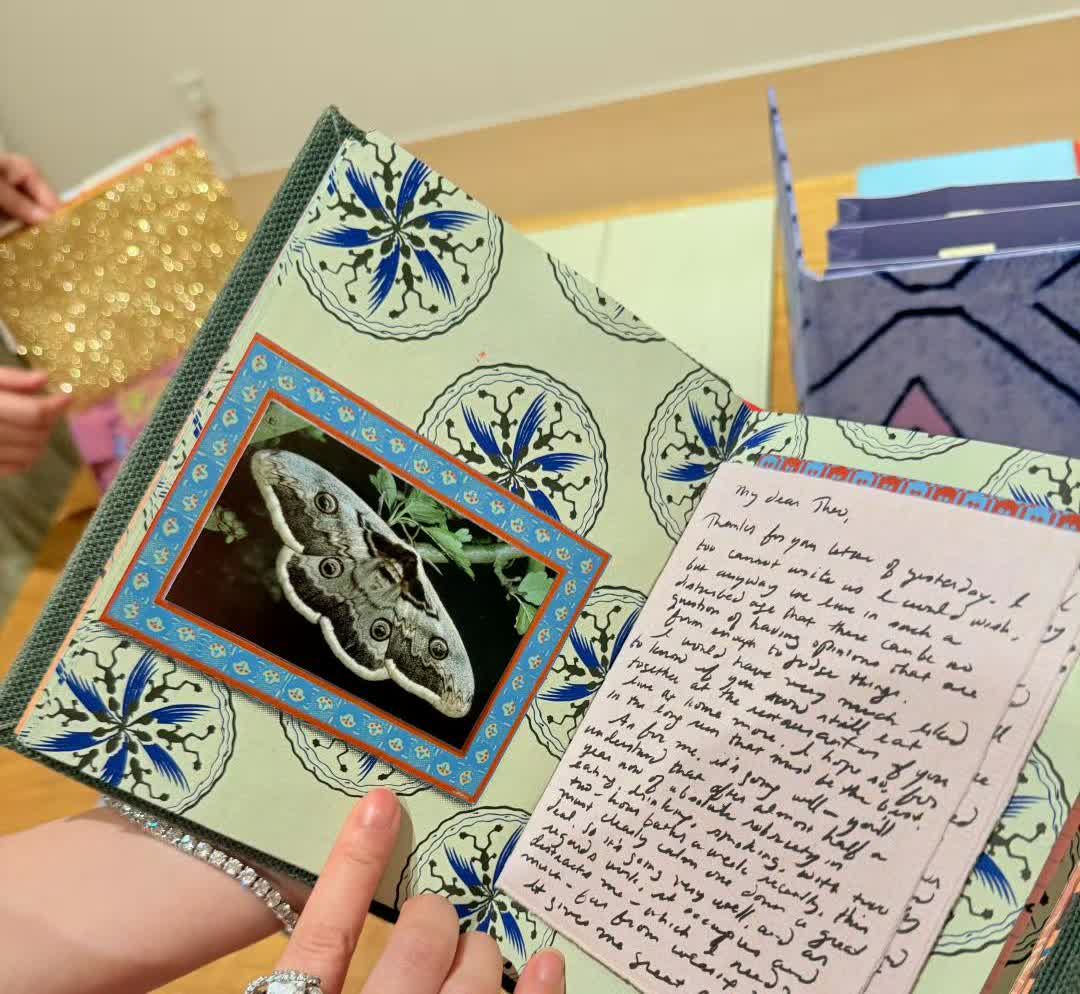 My dear Theo,
Thanks for your letter of yesterday. I
too cannot write as I would wish,
but anyway we live in such a
disturbed age that there can be no
question of having opinions that are
firm enough to judge things.
I would have very much liked
to know if you now still eat
together at the restaurant or if you
live at home more. I hope so, for
in the long run that must be the best.
As for me, it's going well — you'll
understand that after almost half a
year now of absolute sobriety in
eating, drinking, smoking, with two
two-hour baths a week recently, this
must clearly calm one down a great
deal. So it's going very well, and as
regards work, it occupies and
distracts me — which I need
much — far from wearing
it gives me
great